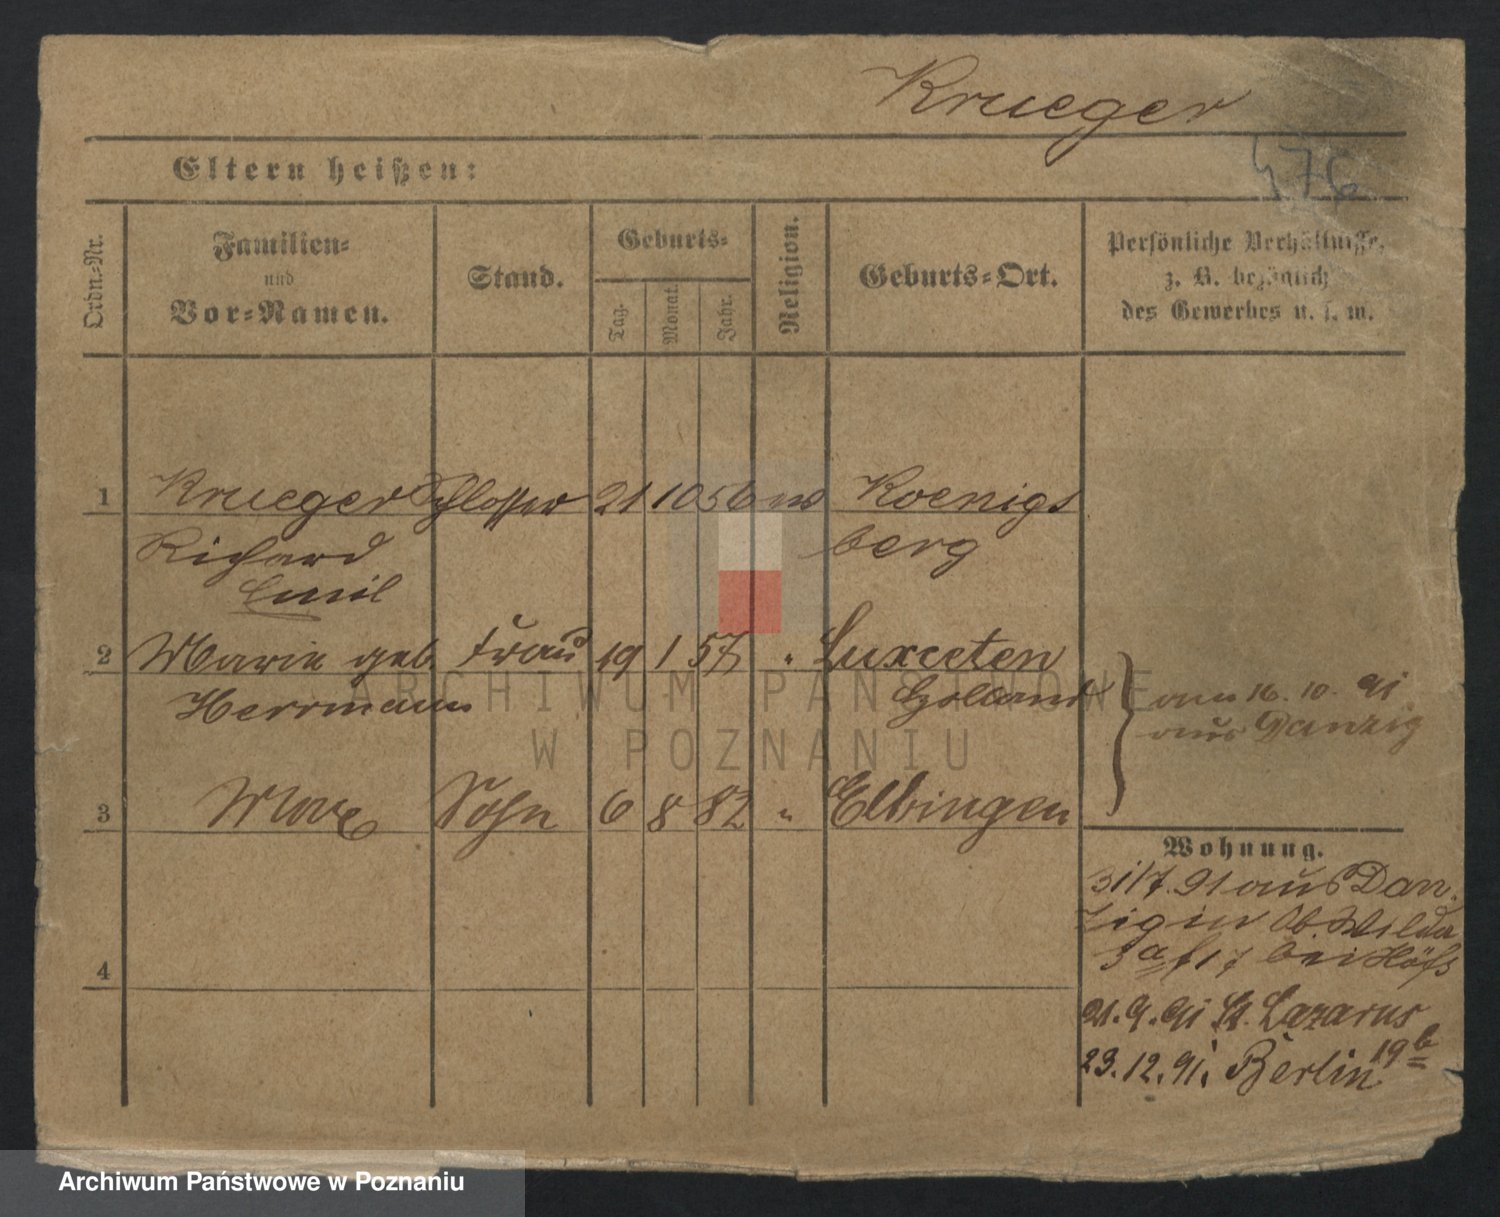 Krueger
476
Eltern heißen:
Ordn.-Nr.
Familien-
und
Vor-Namen.
Stand.
Geburts-
Tag.
Monat.
Jahr.
Religion.
Geburts-Ort.
Persönliche Verhältnisse,
z. B. bezüglich
des Gewerbes u. s. w.
1 Krueger Schlosser 21 10 56 Koenigs
Richard berg
Emil
2 Marie geb. Frau 19 1 57 " 
Herrmann Holland
am 16. 10. 91
aus Danzig
3 Max Sohn 6 8 82 " Elbingen
Wohnung.
31/7. 91 aus Dan-
zig in Ob. Wilda
bei
4
21. 9. 91 St. Lazarus
19b
23. 12. 91. Berlin
ARCHIWUM PAŃSTWOWE
W POZNANIU
Archiwum Państwowe w Poznaniu